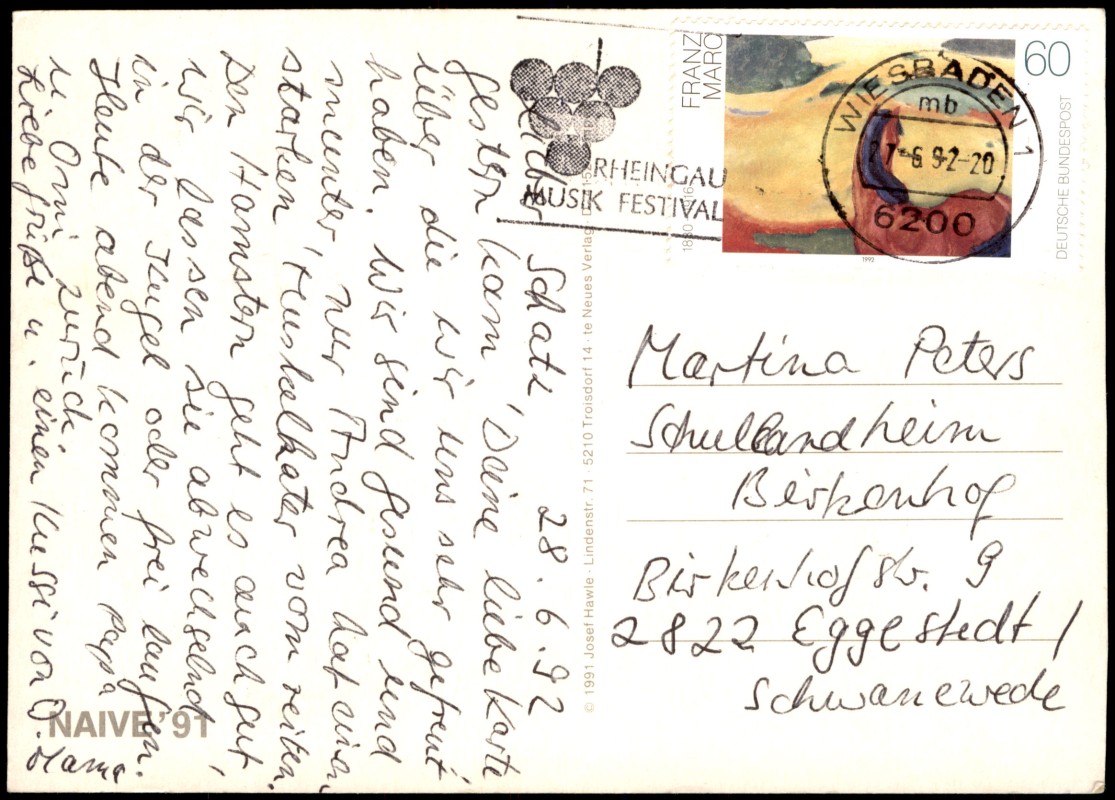 FRANZ
MARC
60
DEUTSCHE BUNDESPOST
1992
WIESBADEN 1
mb
-6.92-20
6200
RHEINGAU
MUSIK FESTIVAL
Lieber Schatz 28.6.92
gestern kam Deine liebe Karte
über die wir uns sehr gefreut
haben. Wir sind gesund und
munter, nur Andrea hat einen
starken Muskelkater vom reiten.
Den Hamstern geht es auch gut,
wir lassen sie abwechselnd
in der Kugel oder frei laufen.
Heute abend kommen Papa
u. Omi zurück.
Liebe Grüße u. einen Kussi von D.
Mama
NAIVE '91
© 1991 Josef Hawle · Lindenstr. 71 · 5210 Troisdorf 14 · te Neues Verlag
Martina Peters
Schullandheim
Birkenhof
Birkenhofstr. 9
2822 Eggestedt /
Schwanewede